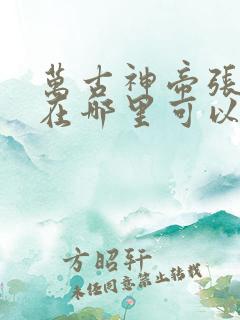 萬古神帝張
在哪里可以
方昭轩
未经同意禁止转载